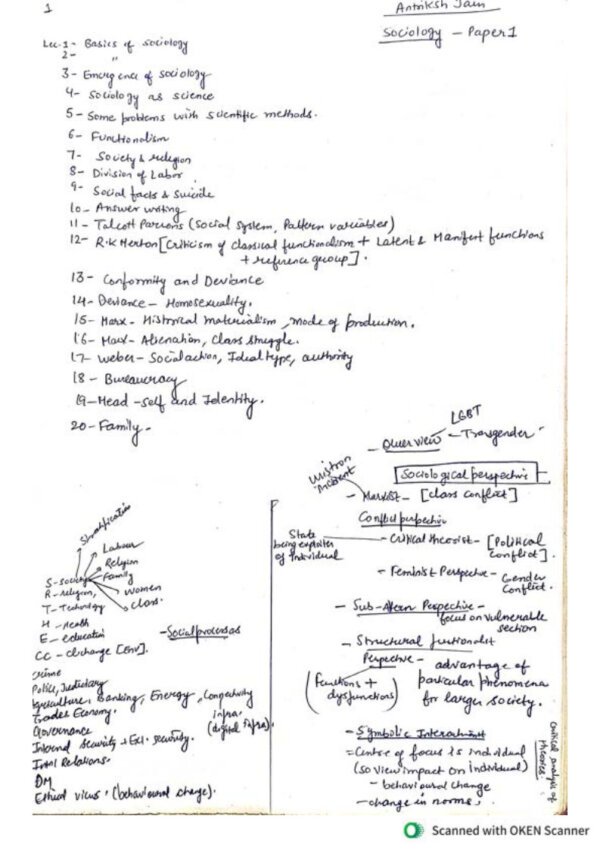 1
Antriksh Jain
Sociology - Paper 1
Lec-1- Basics of sociology
2- "
3- Emergence of sociology
4- Sociology as science
5- Some problems with scientific methods.
6- Functionalism
7- Society & religion
8- Division of Labor
9- Social facts & Suicide
10- Answer writing
11- Talcott Parsons (Social system, Pattern variables)
12- R.K Merton [Criticism of classical functionalism + Latent & Manifest functions
+ reference group].
13- Conformity and Deviance
14- Deviance- Homosexuality.
15- Marx- Historical materialism, mode of production.
16- Marx- Alienation, Class struggle.
17- Weber- Social action, Ideal type, authority
18- Bureaucracy
19- Mead- self and Identity.
20- Family.
LGBT
- Queer view - Transgender
Sociological perspective
Wistron
Incident
- Marxist- [class conflict]
Conflict perspective
State
being exploiter
of Individual
- Critical theorist- [Political
conflict].
- Feminist Perspective- Gender
Conflict.
- Sub-Altern Perspective-
focus on vulnerable
section
- Structural functionalist
Perspective-
(Functions +
dysfunctions)
advantage of
particular phenomena
for larger society.
- Symbolic Interactionist
= Centre of focus is individual
(so view impact on individual)
- behavioural change
- change in norms.
Critical analysis of
theories
Stratification
Labour
Religion
Family
women
class.
S- society
R- religion,
T- Technology
H- Health
E- education
CC- cl. change [Env].
- Social processes
crime
Police, Judiciary
Agriculture, Banking, Energy, Connectivity
infra.
(digital infra)
Trades Economy.
Governance
Internal Security + Ext. security.
Intnl Relations.
DM
Ethical views. (behavioural change).
Scanned with OKEN Scanner